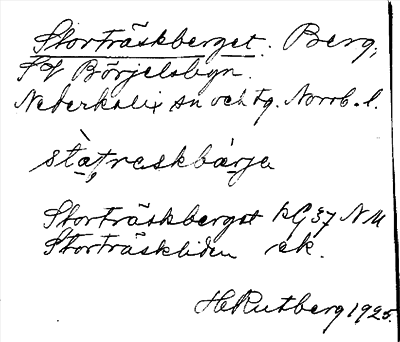 Storträskberget. Berg,
Sf Börjelsbyn.
Nederkalix sn och tg. Norrb. l.
stàtraskbàrja
Storträskberget kG 37 NM
Storträskliden ek.
H Rutberg 1925.